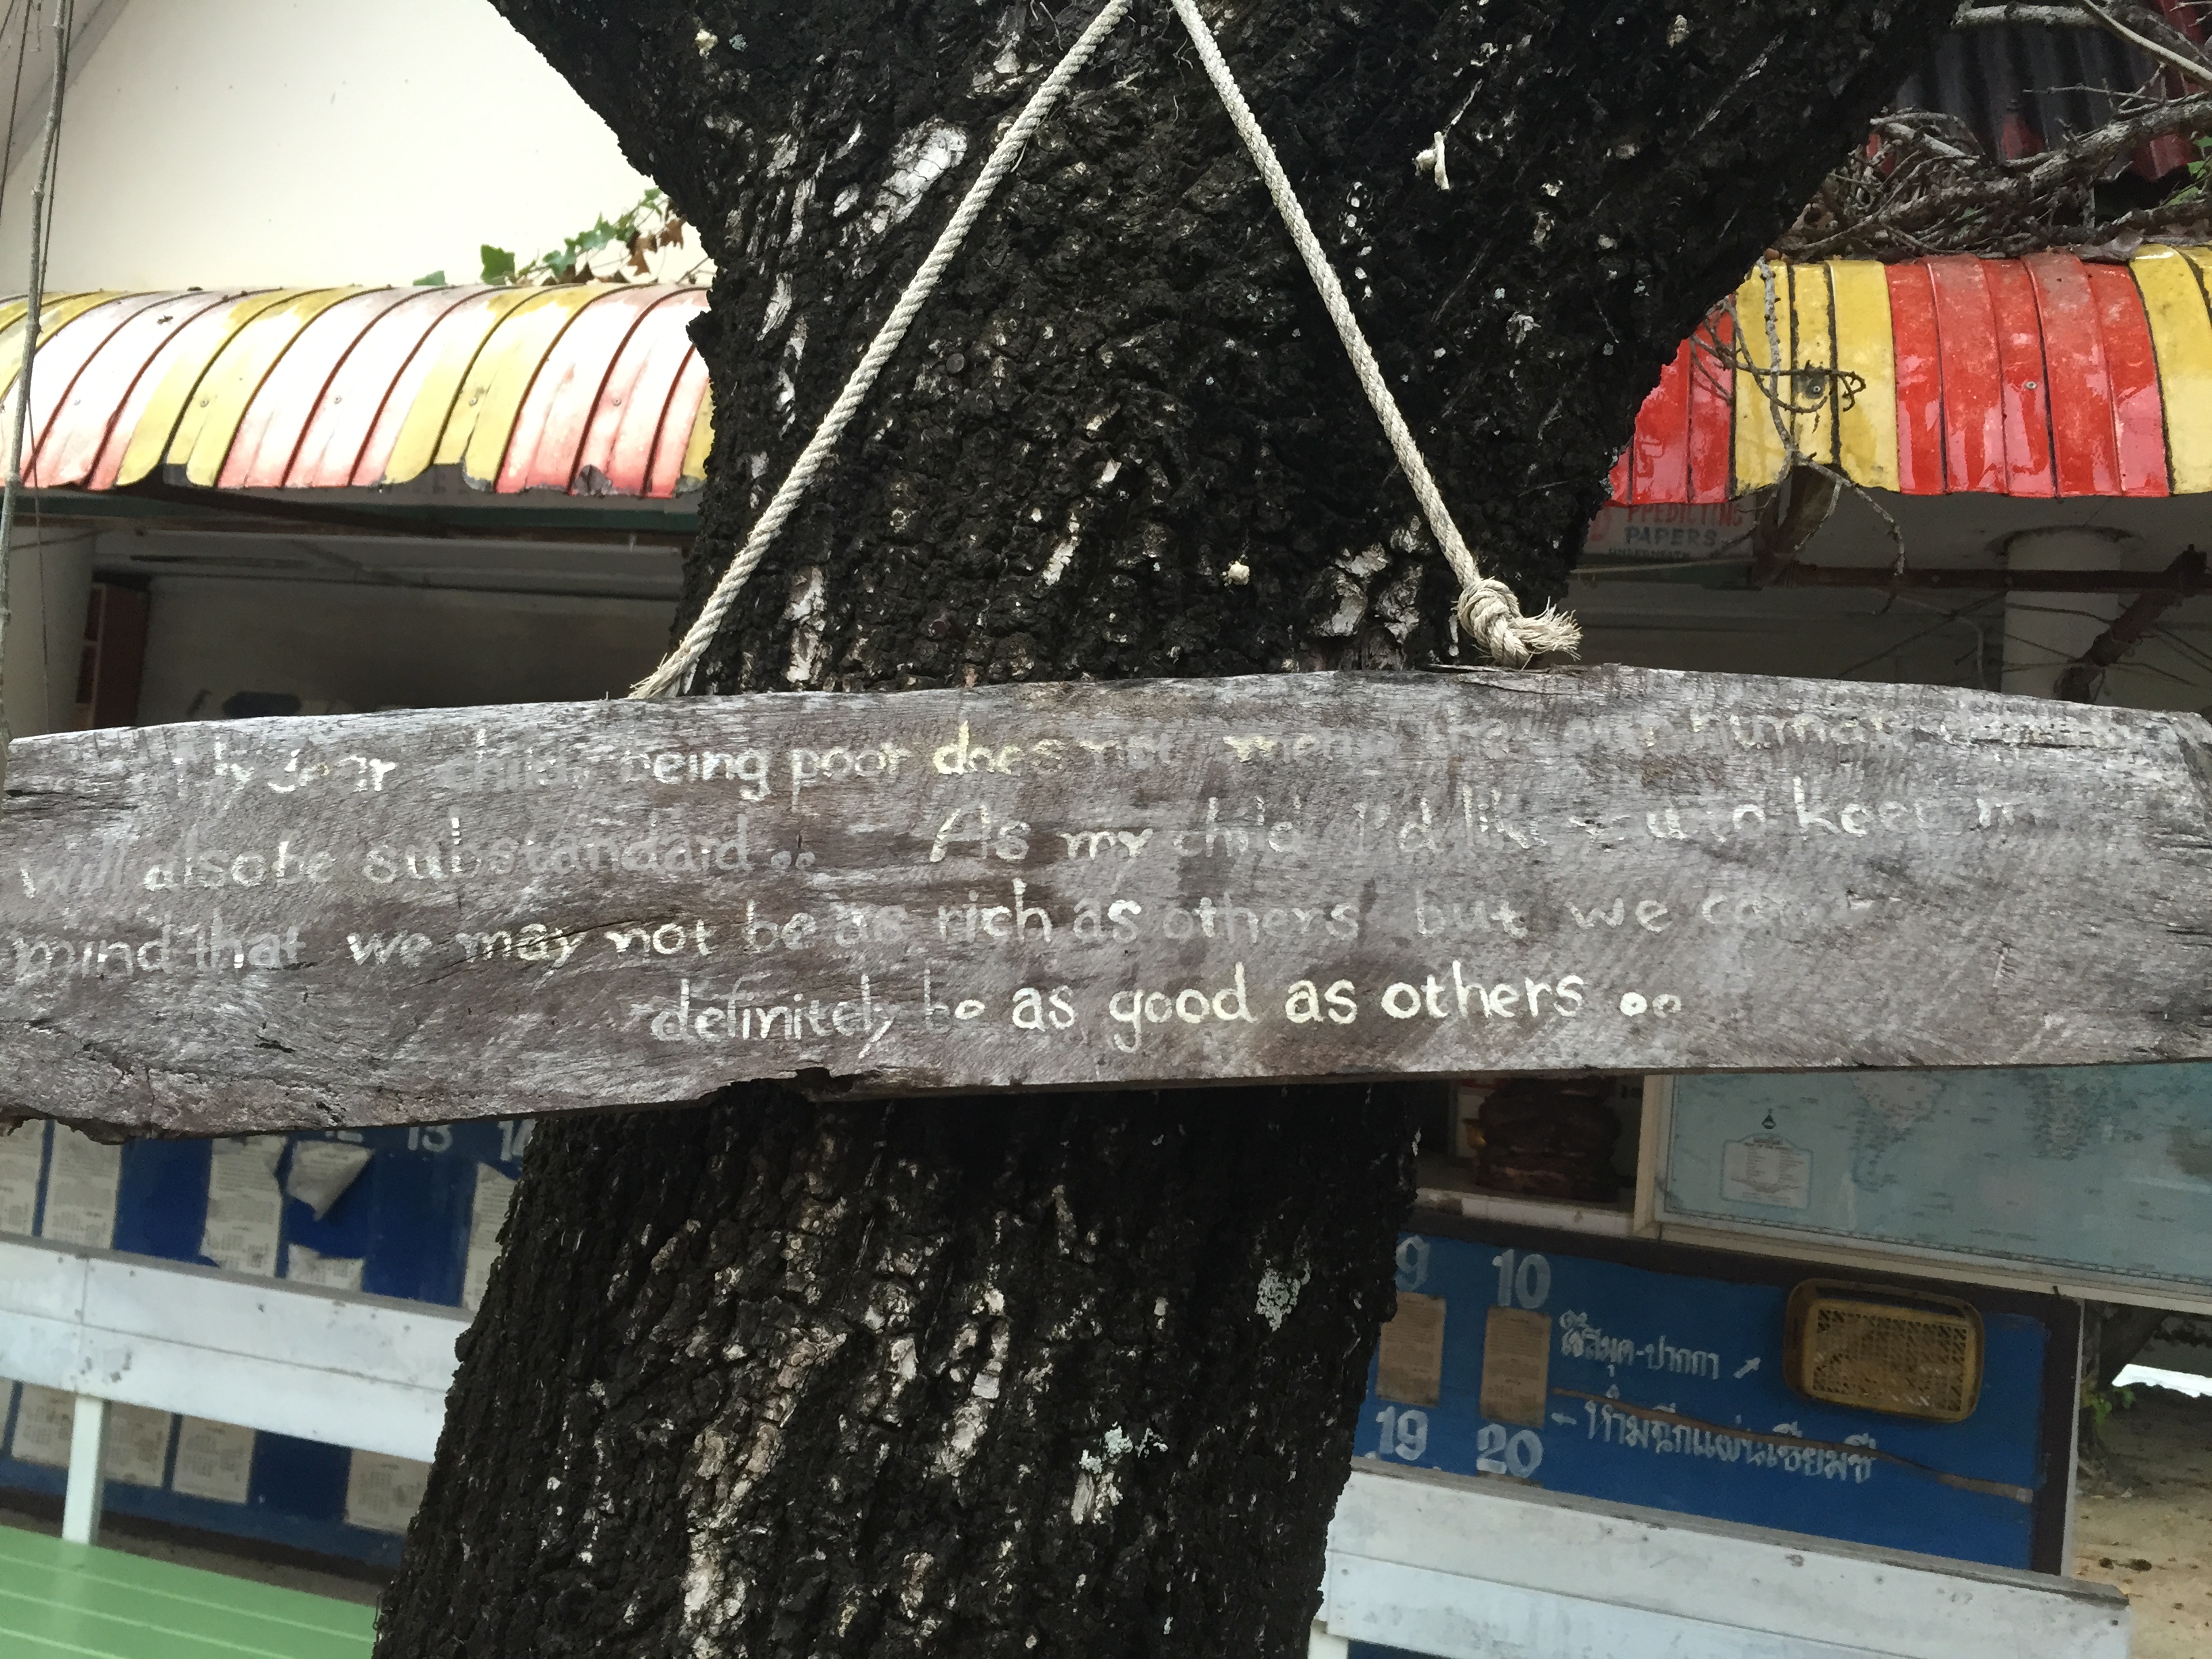 PREDICTING
PAPERS
My dear child, being poor does not mean the our human
will also be substandard..   As my child I'd like u to keep in
mind that we may not be as rich as others but we can
definitely be as good as others ..
12 13
9 10
ใช้สมุด-ปากกา
19 20 - ห้ามฉีกแผ่นเซียมซี